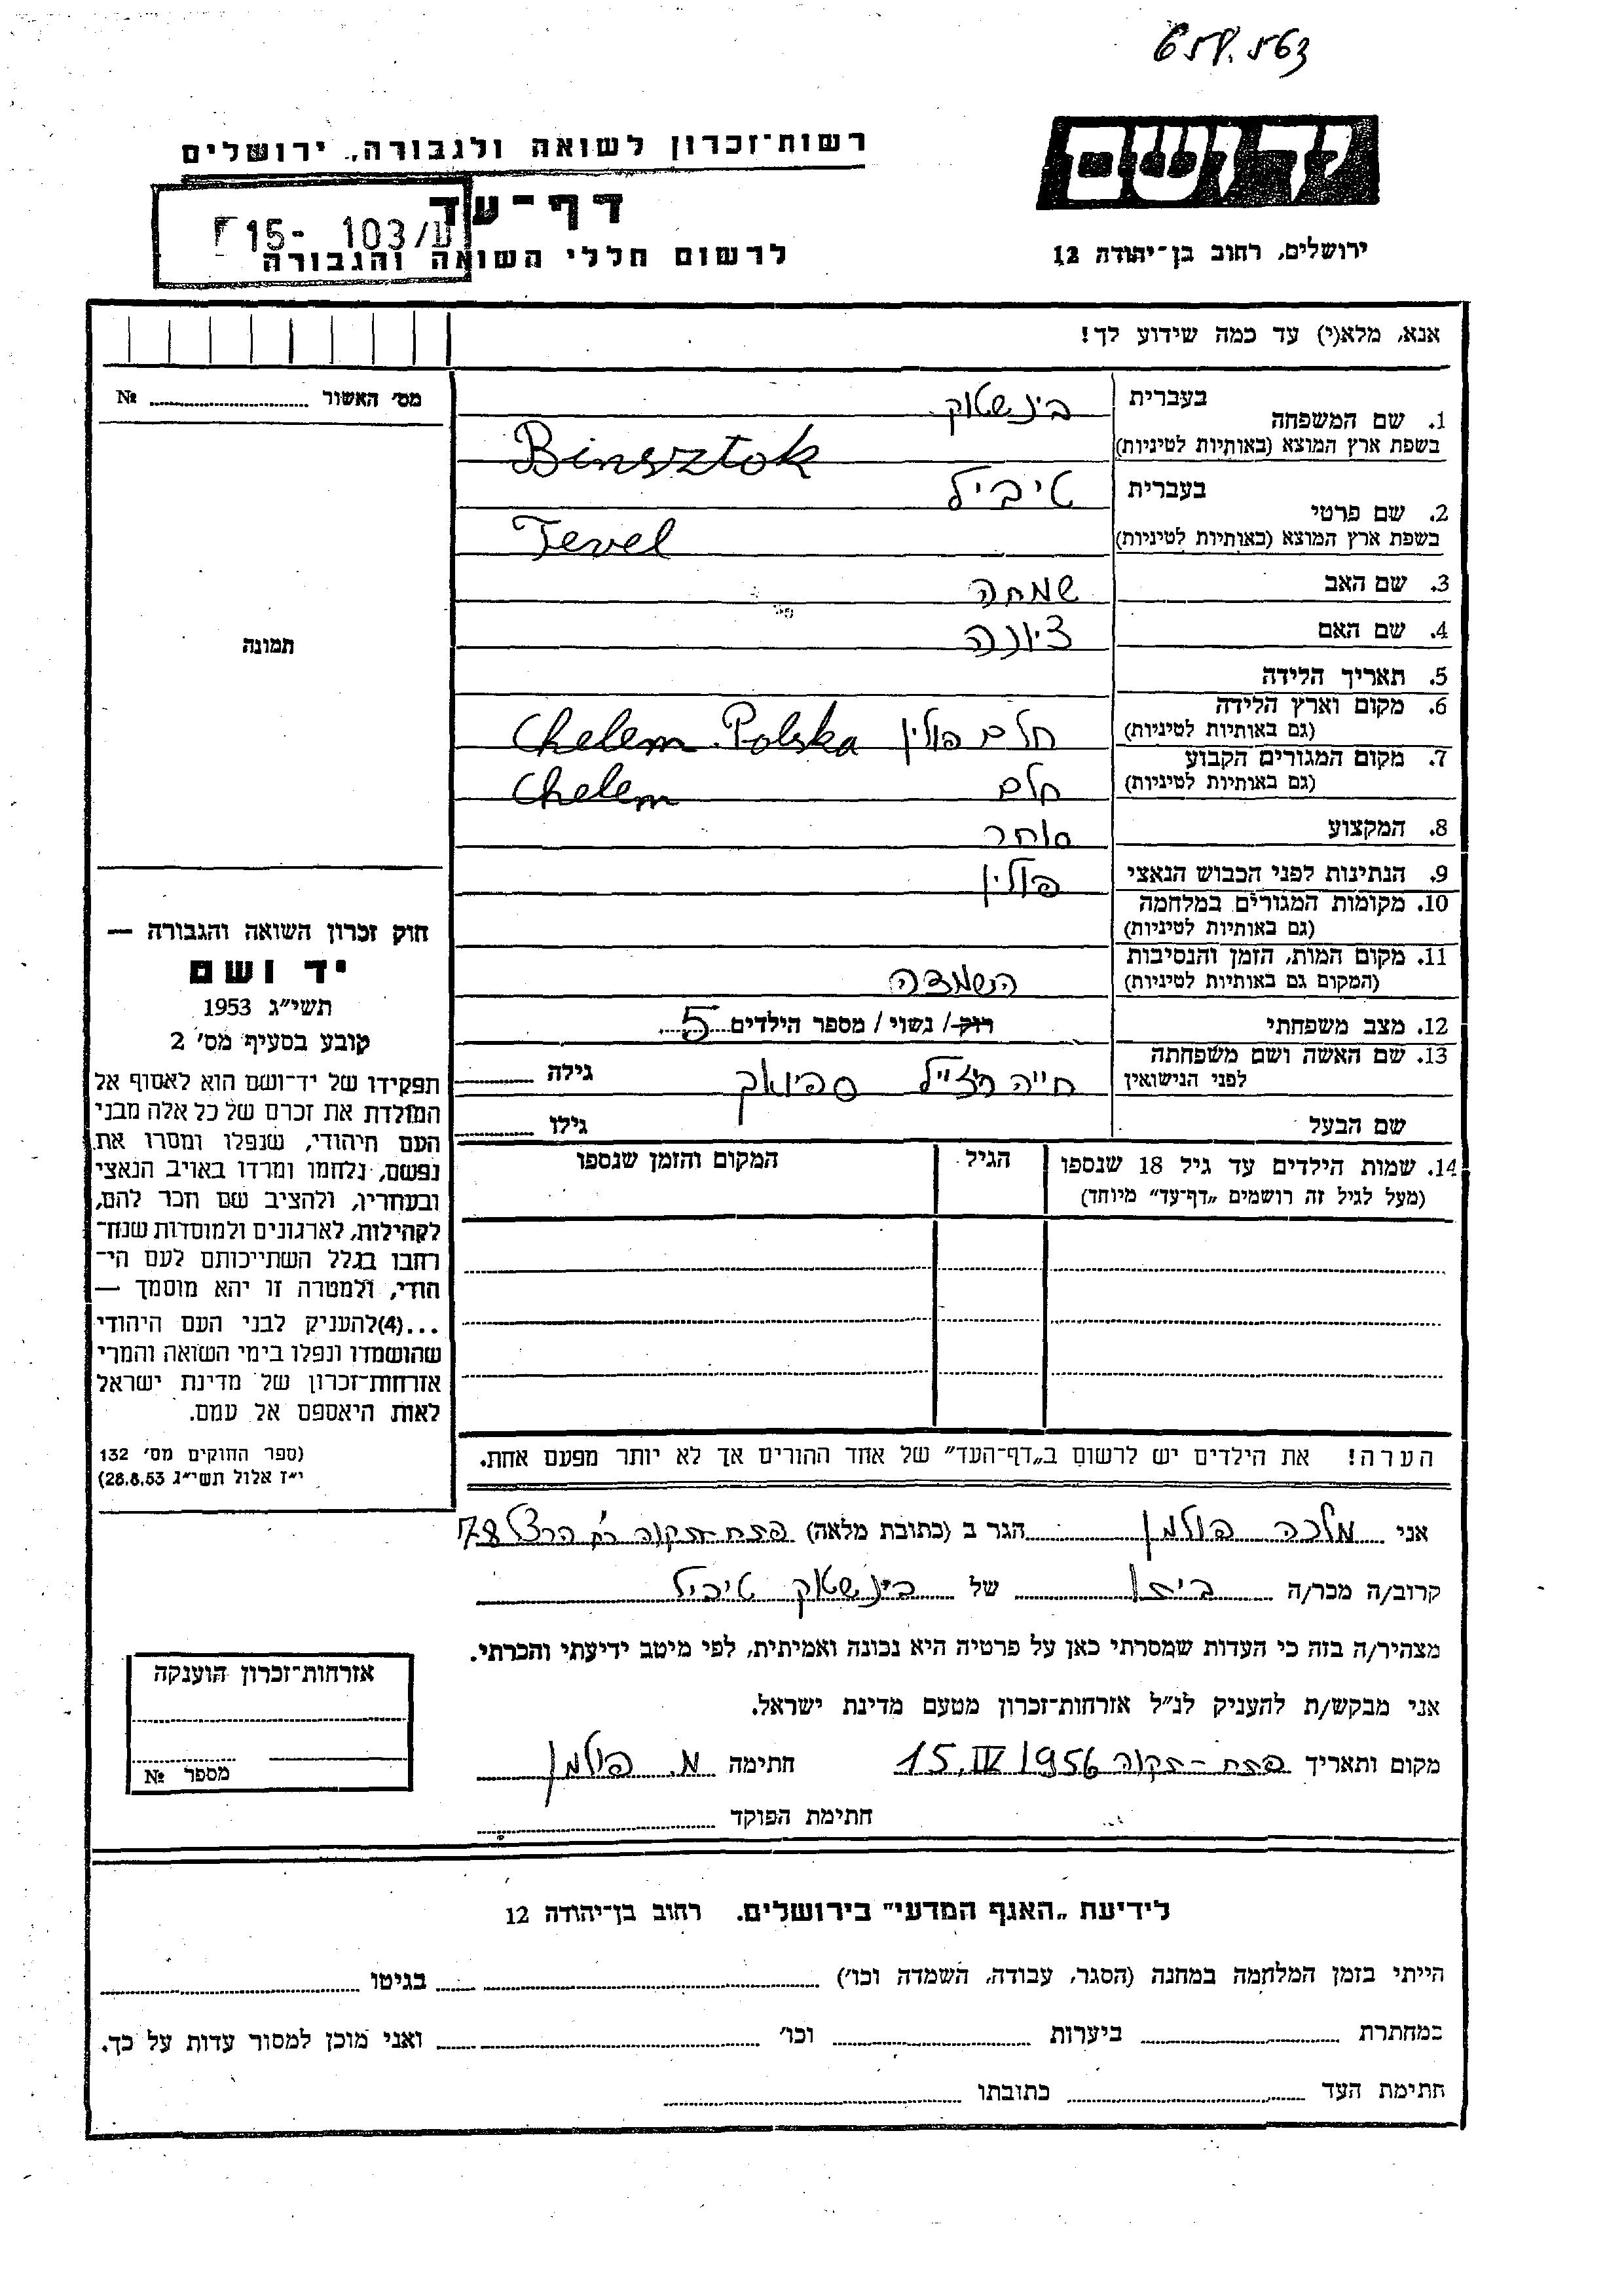 658.563
יד ושם
רשות־זכרון לשואה ולגבורה, ירושלים
דף־עד
15- 103/ע
לרשום חללי השואה והגבורה
ירושלים, רחוב בן־יהודה 12
אנא, מלא(י) עד כמה שידוע לך!
מס׳ האשור № ........
1. שם המשפחה בעברית בינשטוק
בשפת ארץ המוצא (באותיות לטיניות) Binsztok
2. שם פרטי בעברית טיביל
בשפת ארץ המוצא (באותיות לטיניות) Tevel
3. שם האב שמחה
4. שם האם ציונה
תמונה
5. תאריך הלידה
6. מקום וארץ הלידה (גם באותיות לטיניות) חלם פולין Chelem. Polska
7. מקום המגורים הקבוע (גם באותיות לטיניות) חלם Chelem
8. המקצוע סוחר
9. הנתינות לפני הכבוש הנאצי פולין
10. מקומות המגורים במלחמה (גם באותיות לטיניות)
11. מקום המות, הזמן והנסיבות (המקום גם באותיות לטיניות) השמדה
12. מצב משפחתי רוק / נשוי / מספר הילדים 5
13. שם האשה ושם משפחתה לפני הנישואין חייה רייזיל גילה
שם הבעל גילו
14. שמות הילדים עד גיל 18 שנספו הגיל המקום והזמן שנספו
(מעל לגיל זה רושמים „דף־עד״ מיוחד)
חוק זכרון השואה והגבורה —
יד ושם
תשי״ג 1953
קובע בסעיף מס׳ 2
תפקידו של יד־ושם הוא לאסוף אל
המולדת את זכרם של כל אלה מבני
העם היהודי, שנפלו ומסרו את
נפשם, נלחמו ומרדו באויב הנאצי
ובעוזריו, ולהציב שם וזכר להם,
לקהילות, לארגונים ולמוסדות שנח־
רחבו בגלל השתייכותם לעם הי־
הודי, ולמטרה זו יהא מוסמך —
...(4)להעניק לבני העם היהודי
שהושמדו ונפלו בימי השואה והמרי
אזרחות־זכרון של מדינת ישראל
לאות היאספם אל עמם.
(ספר החוקים מס׳ 132
י״ז אלול תשי״ג 28.8.53)
הערה! את הילדים יש לרשום ב„דף־העד״ של אחד ההורים אך לא יותר מפעם אחת.
אני מלכה פולמן הגר ב (כתובת מלאה) פתח־תקוה רח׳ הרצל 78
קרוב/ה מכר/ה ביתו של בינשטוק טיביל
מצהיר/ה בזה כי העדות שמסרתי כאן על פרטיה היא נכונה ואמיתית, לפי מיטב ידיעתי והכרתי.
אני מבקש/ת להעניק לנ״ל אזרחות־זכרון מטעם מדינת ישראל.
מקום ותאריך פתח־תקוה 15.IV 1956 חתימה מ. פולמן
חתימת הפוקד
אזרחות־זכרון הוענקה
מספר №
לידיעת „האגף המדעי״ בירושלים. רחוב בן־יהודה 12
הייתי בזמן המלחמה במחנה (הסגר, עבודה, השמדה וכו׳) בגיטו
במחתרת ביערות וכו׳ ואני מוכן למסור עדות על כך.
חתימת העד כתובתו